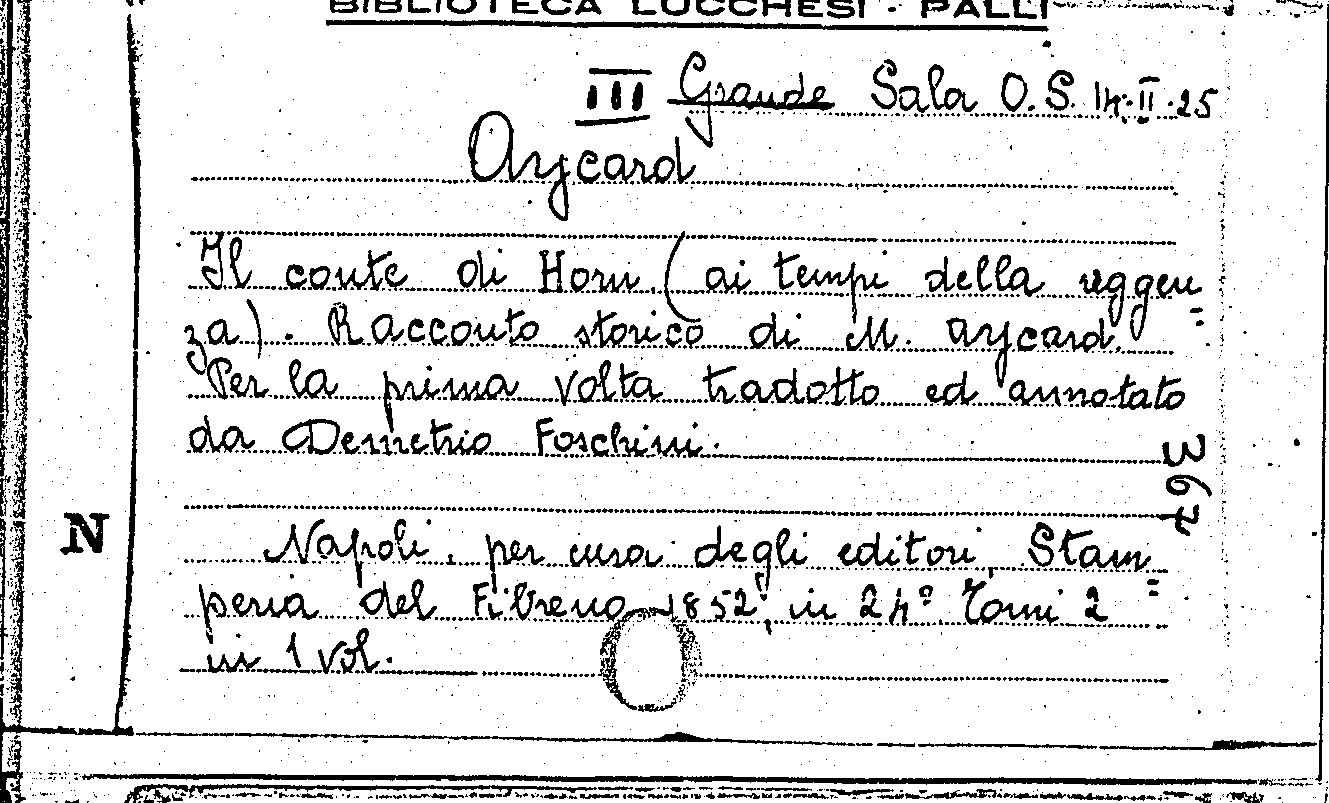 BIBLIOTECA LUCCHESI - PALLI
III Grande Sala O.S. 14.II.25
Aycard
Il conte di Horn. (ai tempi della reggen=
za). Racconto storico di M. Aycard.
Per la prima volta tradotto ed annotato
da Demetrio Foschini.
367
N
Napoli, per cura degli editori, Stam=
peria del Fibreno, 1852; in 24° Tomi 2
in 1 vol.